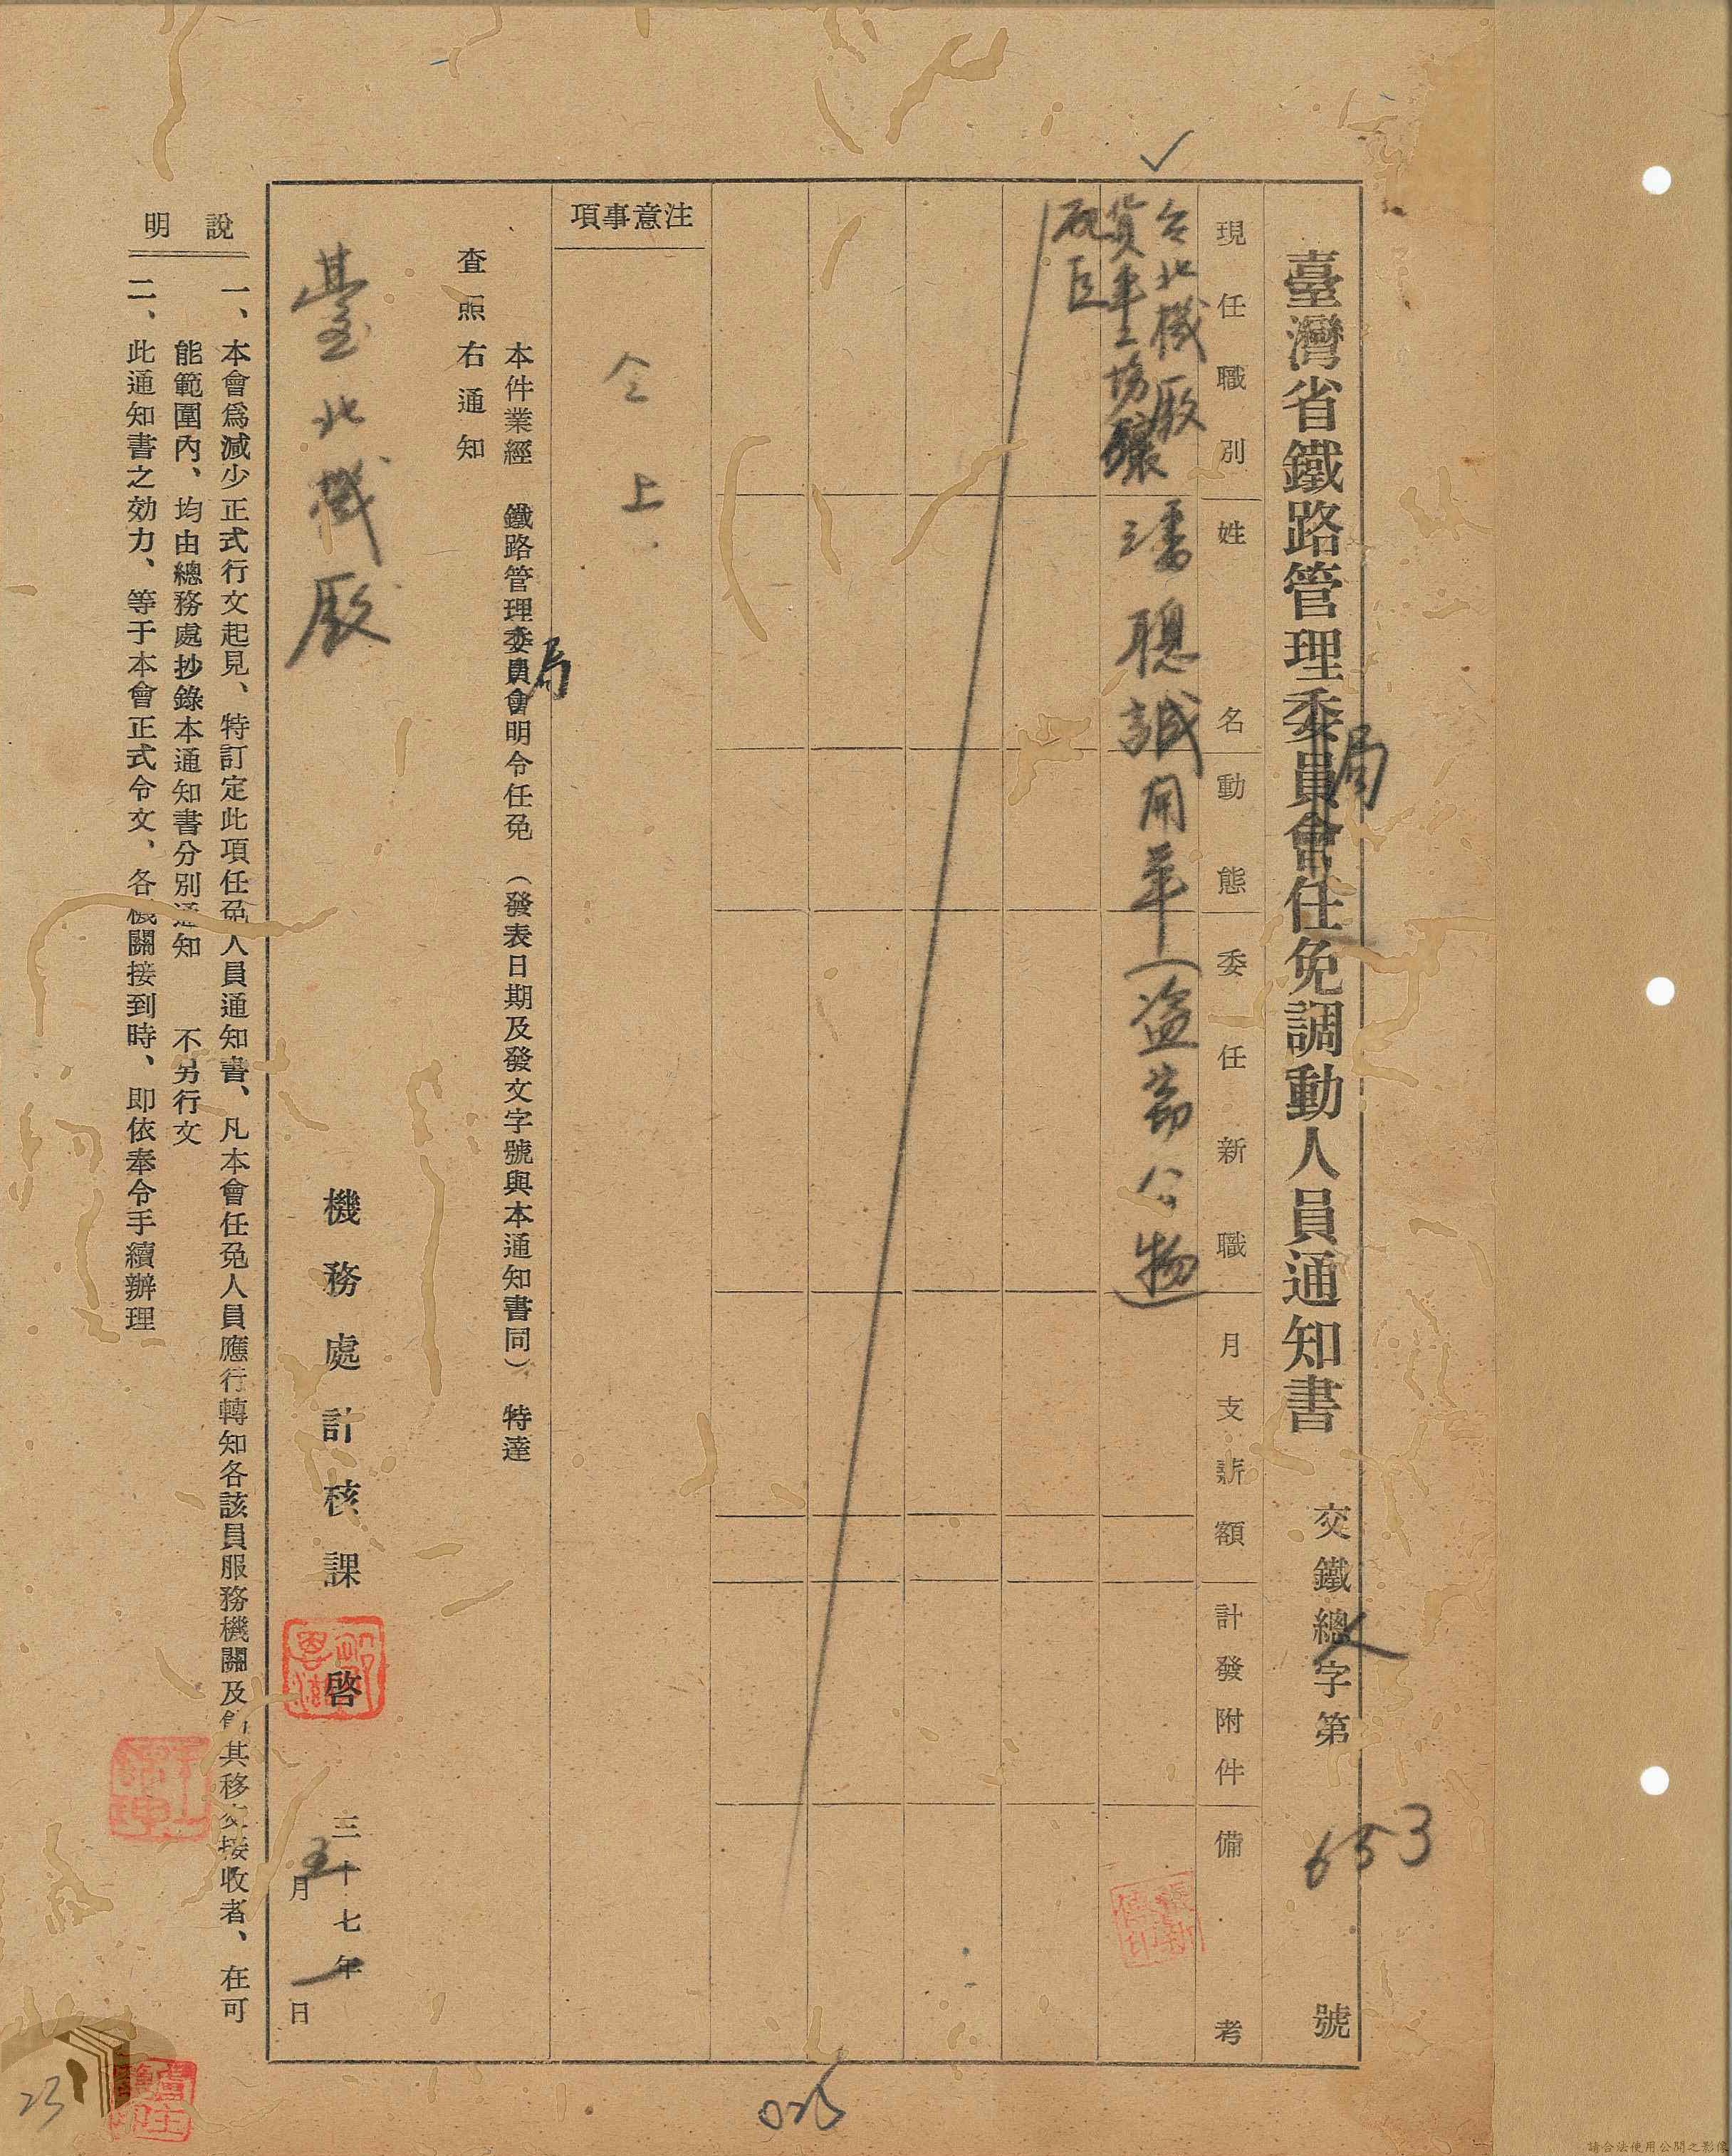 臺灣省鐵路管理委員會任免調動人員通知書
局
交鐵總字第 653 號
人
現任職別
姓名
動態
委任新職
月支薪額
計發附件
備考
台北機廠
貨車工場
潘聰誠
開革(盜翦公物)
注意事項
仝上
本件業經 鐵路管理委員會明令任免 (發表日期及發文字號與本通知書同) 特達
局
查照右通知
臺北機廠
機務處計核課 啓
三十七年五月一日
說明
一、本會爲減少正式行文起見、特訂定此項任免人員通知書、凡本會任免人員應行轉知各該員服務機關及 其移交接收者、在可
能範圍內、均由總務處抄錄本通知書分別通知 不另行文
二、此通知書之効力、等于本會正式令文、各機關接到時、即依奉令手續辦理
23
請合法使用公開之影像